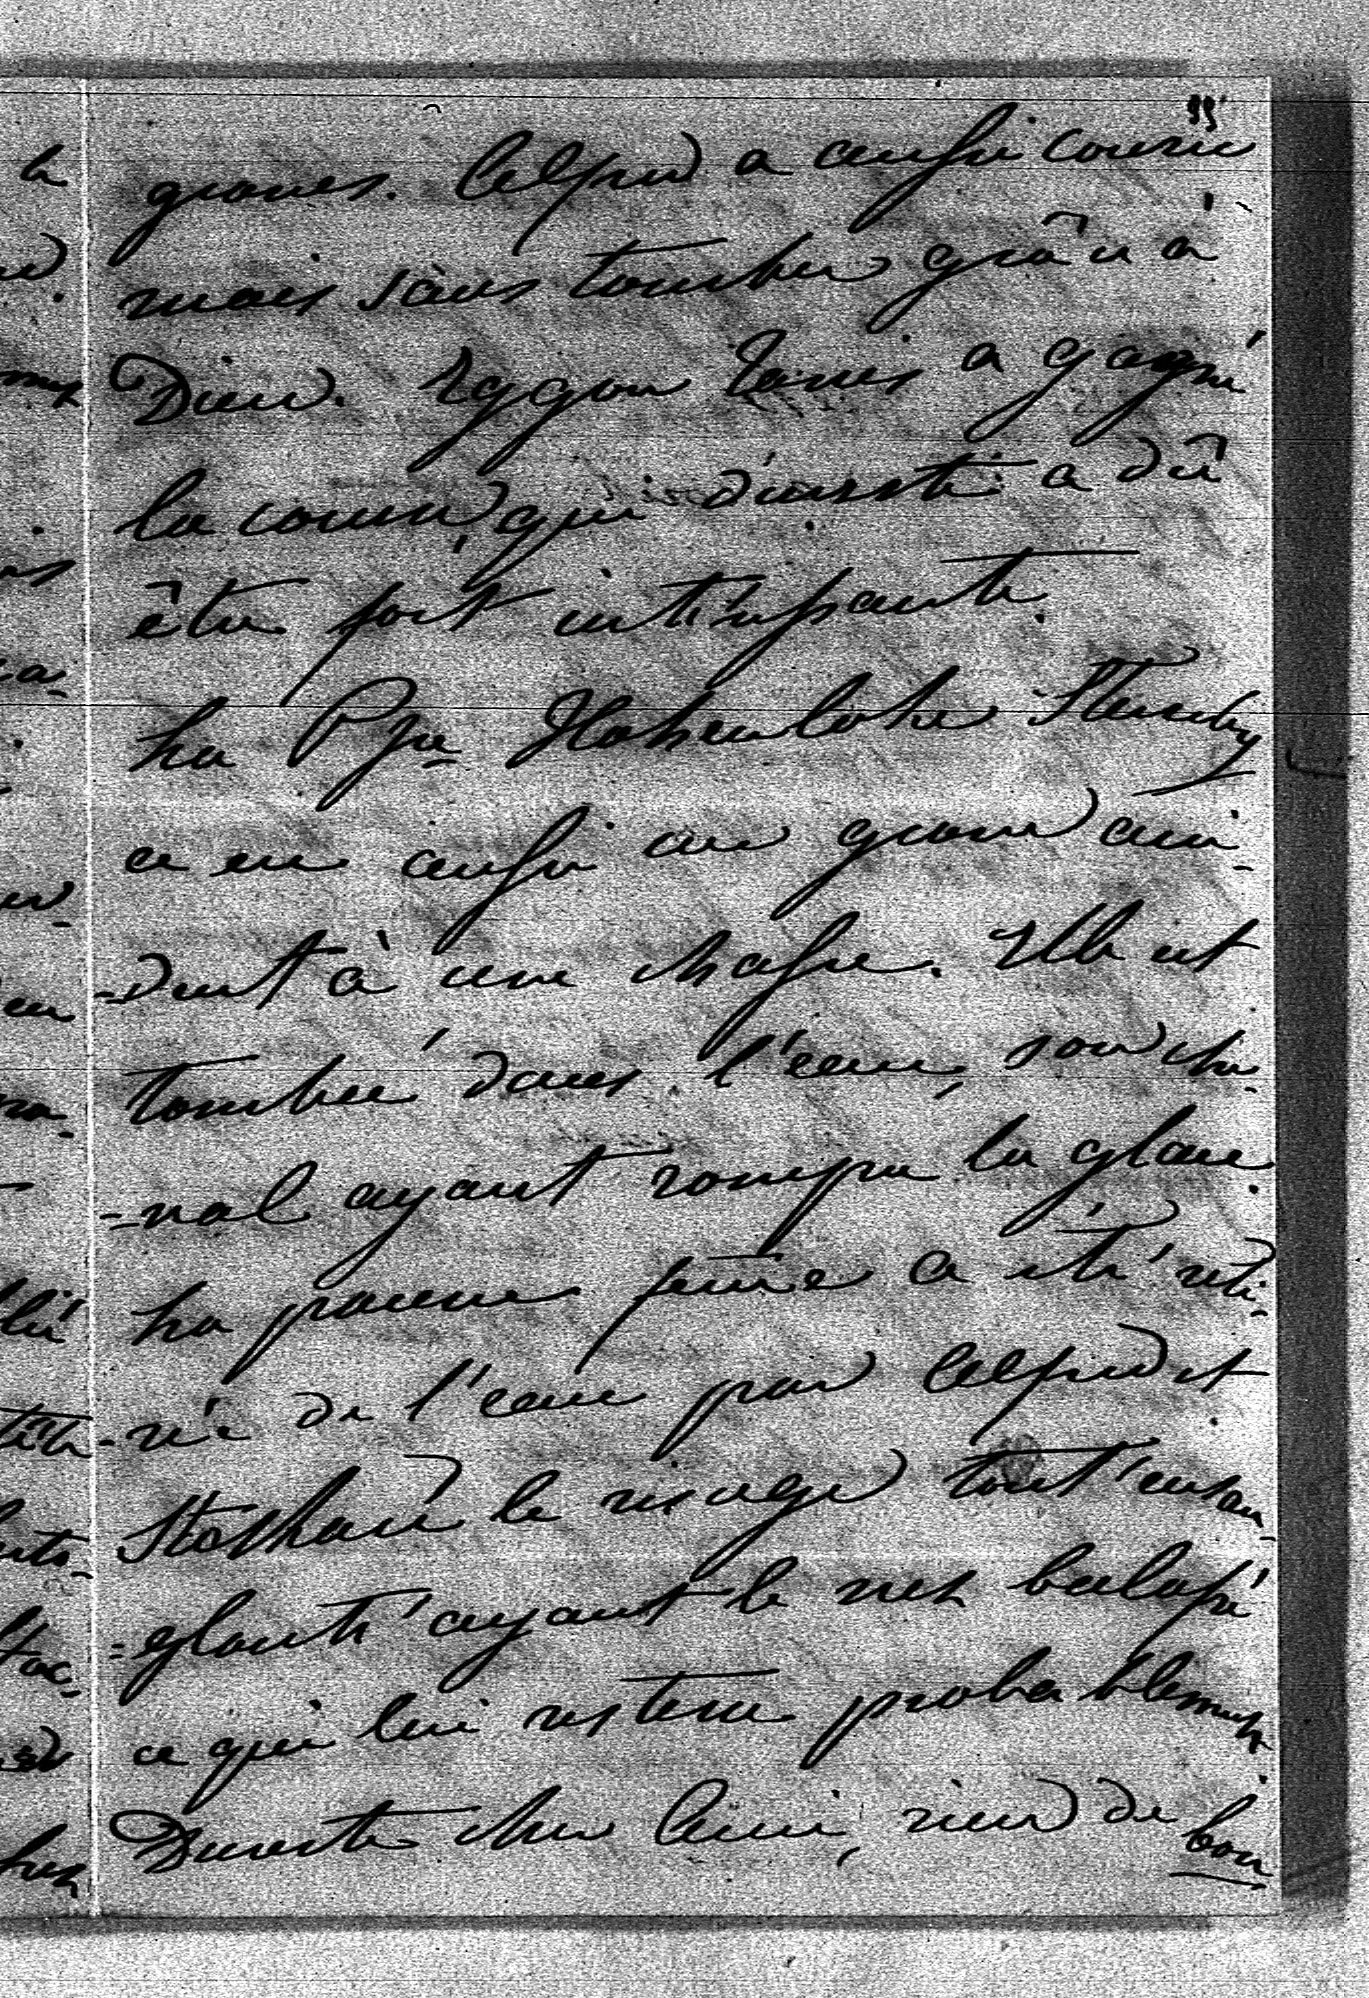 graves. Alfred a aussi couru
mais sans tomber grâce à
Dieu. Eggon Taxis a gagné
la course, qui du reste a dû
être fort intéressante.
La Pssе Hohenlohe
a eu aussi un grand acci-
-dent à une chasse. Elle est
tombée dans l'eau, son che-
-val ayant rompu la glace.
La pauvre feme a été reti-
-rée de l'eau par Alfred et
Stephanie le visage tout ensan-
-glanté ayant le nez balafré
ce qui lui restera probablement.
Du reste cher Ami, rien de bon